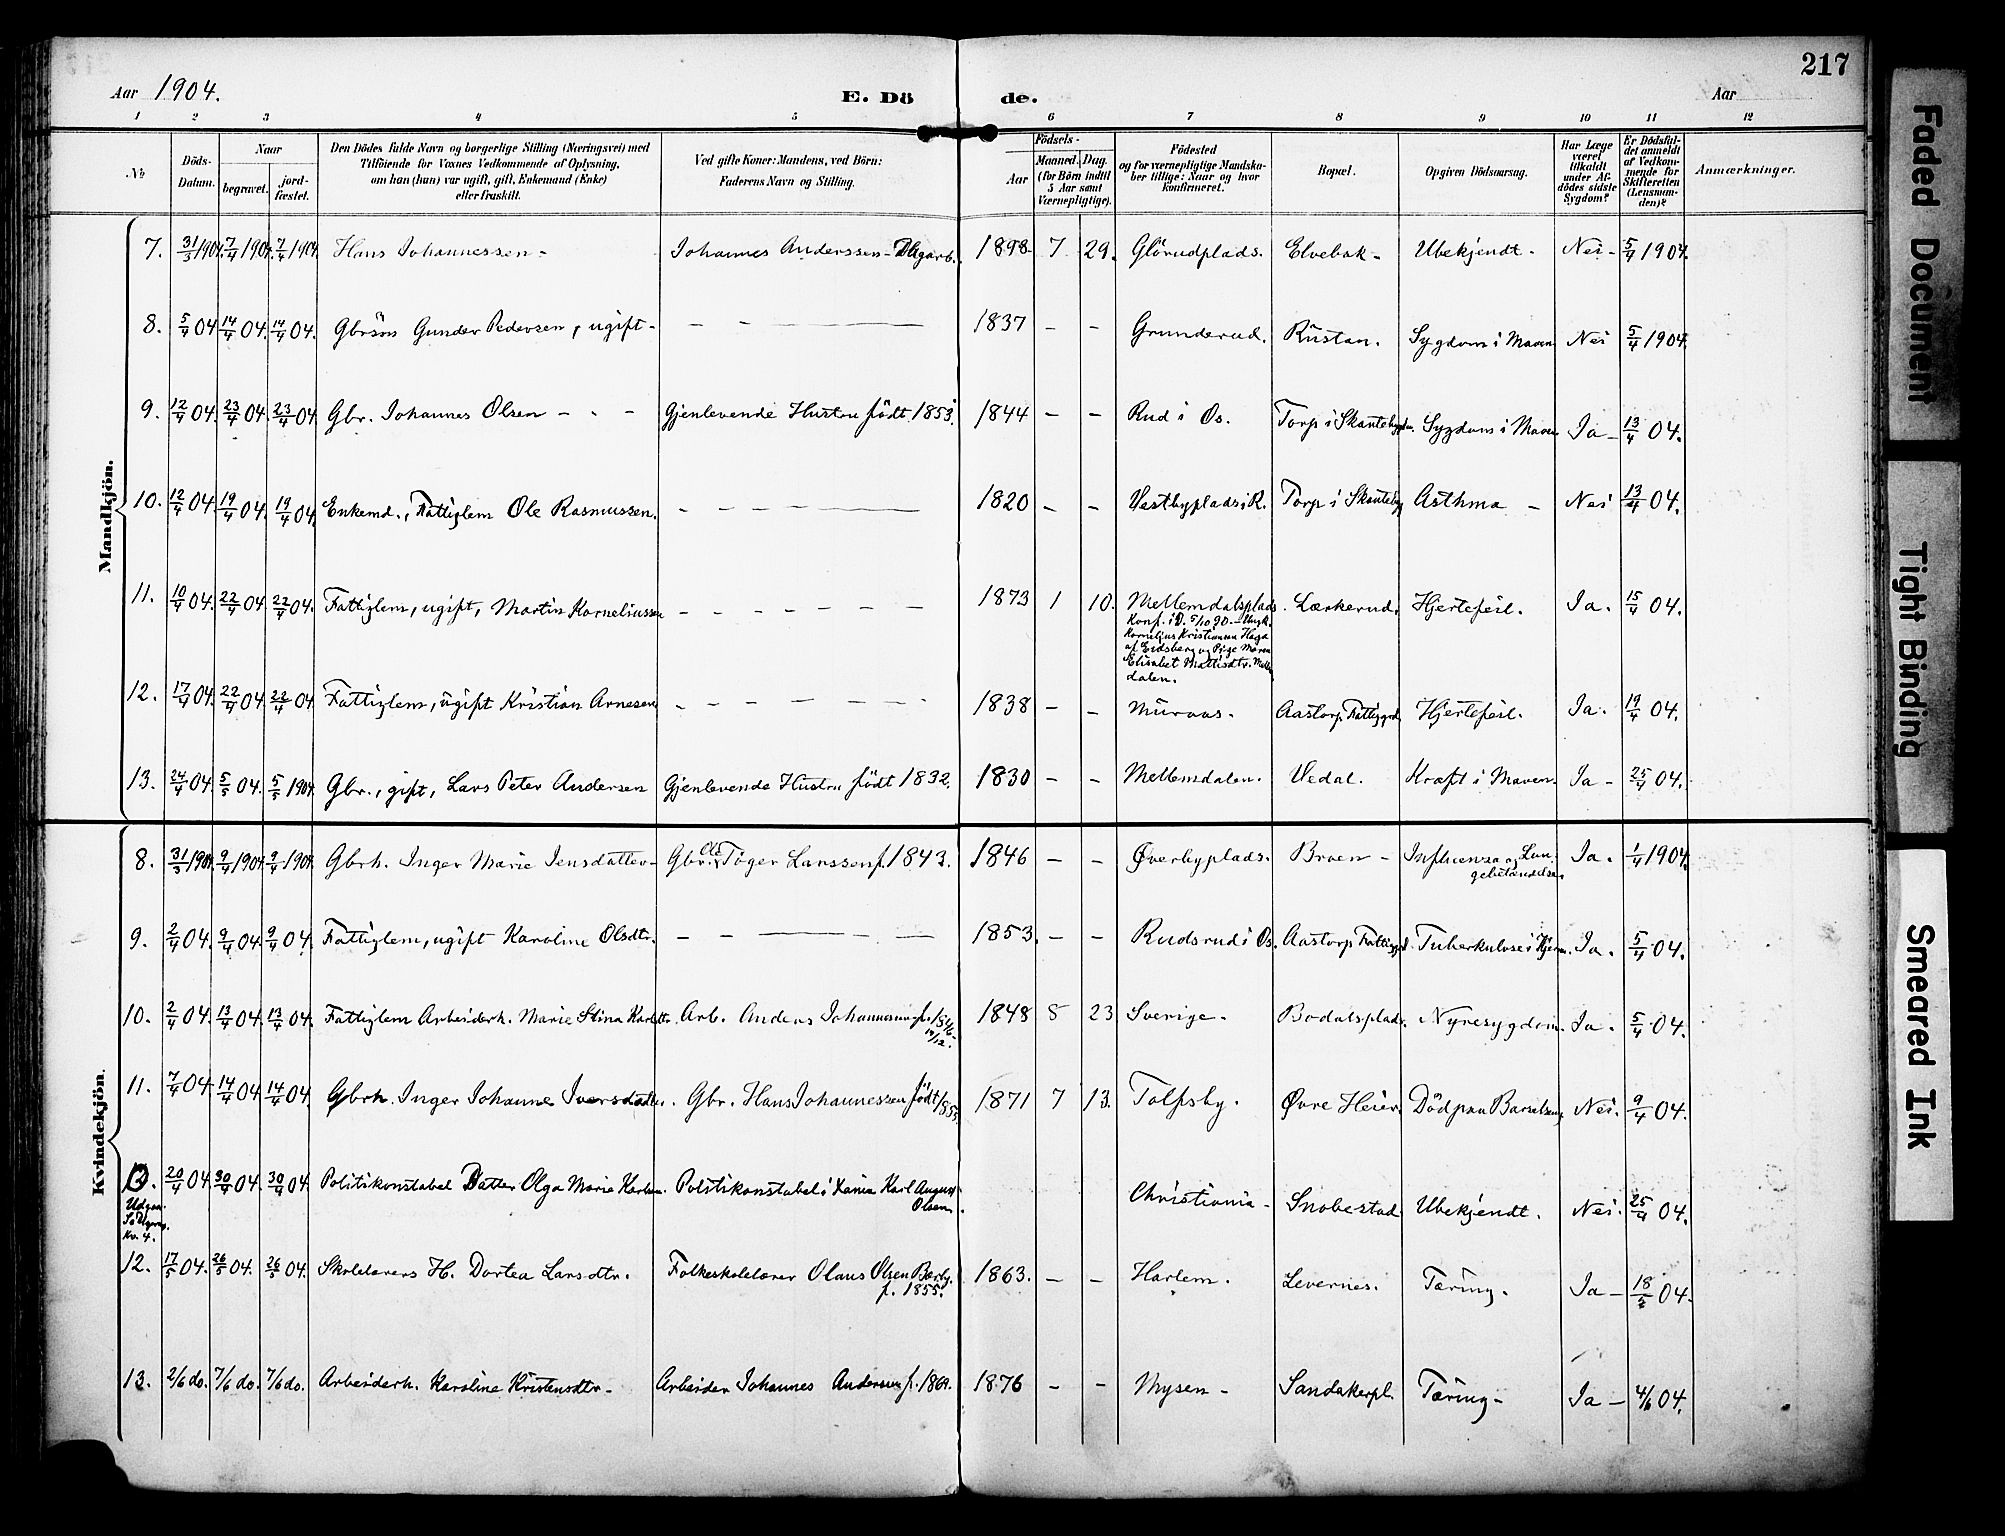 217
Aar 1904. E. Dö de. Aar
1 2 3 4 5 6 7 8 9 10 11 12
No Döds-Datum. Naar begravet. jord-fæstet. Den Dödes fulde Navn og borgerlige Stilling (Næringsvei) med Tilföiende for Voxnes Vedkommende af Oplysning, om han (hun) var ugift, gift, Enkemand (Enke) eller fraskilt. Ved gifte Koner: Mandens, ved Börn: Faderens Navn og Stilling. Födsels- Aar Maaned. Dag. (for Börn indtil 5 Aar samt Værnepligtige). Födested og for værnepligtige Mandskaber tillige: Naar og hvor konfirmeret. Bopæl. Opgiven Dödsaarsag. Har Læge været tilkaldt under Afdödes sidste Sygdom? Er Dödsfaldet anmeldt af Vedkommende for Skifteretten (Lensmanden)? Anmærkninger.
Mandkjön.
7. 31/3 1904. 7/4 1904. 7/4 1904. Hans Johannessen - Johannes Anderssen - 1898 7 29. Glörudplads. Elvebak - Ubekjendt. Nei - 5/4 1904.
8. 5/4 04 14/4 04. 14/4 04. Gbrsön Gunder Pedersen, ugift - — — — 1837 - - Grunderud. Rustan. Sygdom i Maven Nei 5/4 1904.
9. 12/4 04. 23/4 04. 23/4 04 Gbr. Johannes Olsen - - - Gjenlevende Hustru födt 1853. 1844 - - Rud i Os. Torp i Sygdom i Maven Ja - 13/4 04.
10. 12/4 04. 19/4 04. 19/4 04. Enkemd., Fattiglem Ole Rasmussen. - - - 1820 - - Vestbyplads i R. Torp i Asthma - Nei 13/4 04.
11. 10/4 04. 22/4 04 22/4 04. Fattiglem, ugift, Martin Korneliussen - - - - - - 1873 1 10. Mellemdalsplads. Lærkerud. Hjertefeil. Ja. 15/4 04.
Konf. i 5/10 90 - Ungk.
Kornelius Kristiansen Haga
af Eidsberg og Pige Maren
Elisabet Mattisdtr.
dalen.
12. 17/4 04. 22/4 04 22/4 04 Fattiglem, ugift Kristian Arnesen - - - - - - 1838 - - Muraas. Aastorp Hjertefeil. Ja. 19/4 04.
13. 24/4 04 5/5 04. 5/5 1904. Gbr., gift, Lars Peter Andersen Gjenlevende Hustru födt 1832. 1830 - - Mellemdalen. Vedal. Kræft i Maven. Ja - 25/4 04.
Kvindekjön.
8. 31/3 1904. 9/4 1904. 9/4 1904. Gbrk. Inger Marie Jensdatter - Gbr. Ole Töger Larssen f. 1843. 1846 - - Överbyplads. Broen - Influenza og Lun- Ja. 1/4 1904.
gebetændelse.
9. 2/4 04. 9/4 04. 9/4 04. Fattiglem, ugift Karoline Olsdtr. - - — - 1853. - - Rudsrud i Os. Aastorp Tuberkulose i Ja. 5/4 04.
10. 2/4 04. 13/4 04. 13/4 04. Fattiglem Arbeiderk. Marie Stina Arb. Anders Johannessen f. 1846 - 1848 8 23 Sverige. Bodalsplads. Nyresygdom. Ja. 5/4 04.
11. 7/4 04 14/4 04 14/4 04. Gbrk. Inger Johanne Iversdatter. Gbr. Hans Johannessen födt 1855. 1871 7 13. Tolfsby. Övre Heier. Död paa Barselseng Nei. 9/4 04.
13. 20/4 04 30/4 04. 30/4 04. Politikonstabel Datter Olga Marie Politikonstabel i Karl August Olsen. Christiania - Snobestad. Ubekjendt. Nei. 25/4 04.
Udgaar
Kv. 4.
12. 17/5 04. 26/5 04. 26/5 04. Skolelærers H. Dortea Larsdtr. Folkeskolelærer Olaus Olsen 1863. - - Harlem. Levernes. Tæring. Ja - 18/5 04.
f. 1855.
13. 2/6 do. 7/6 do. 7/6 do. Arbeiderk. Karoline Kristensdtr - Arbeider Johannes Andersen f. 1869. 1876 - - Mysen - Sandakerpl. Tæring - Ja - 4/6 04.
Faded Document
Tight Binding
Smeared Ink